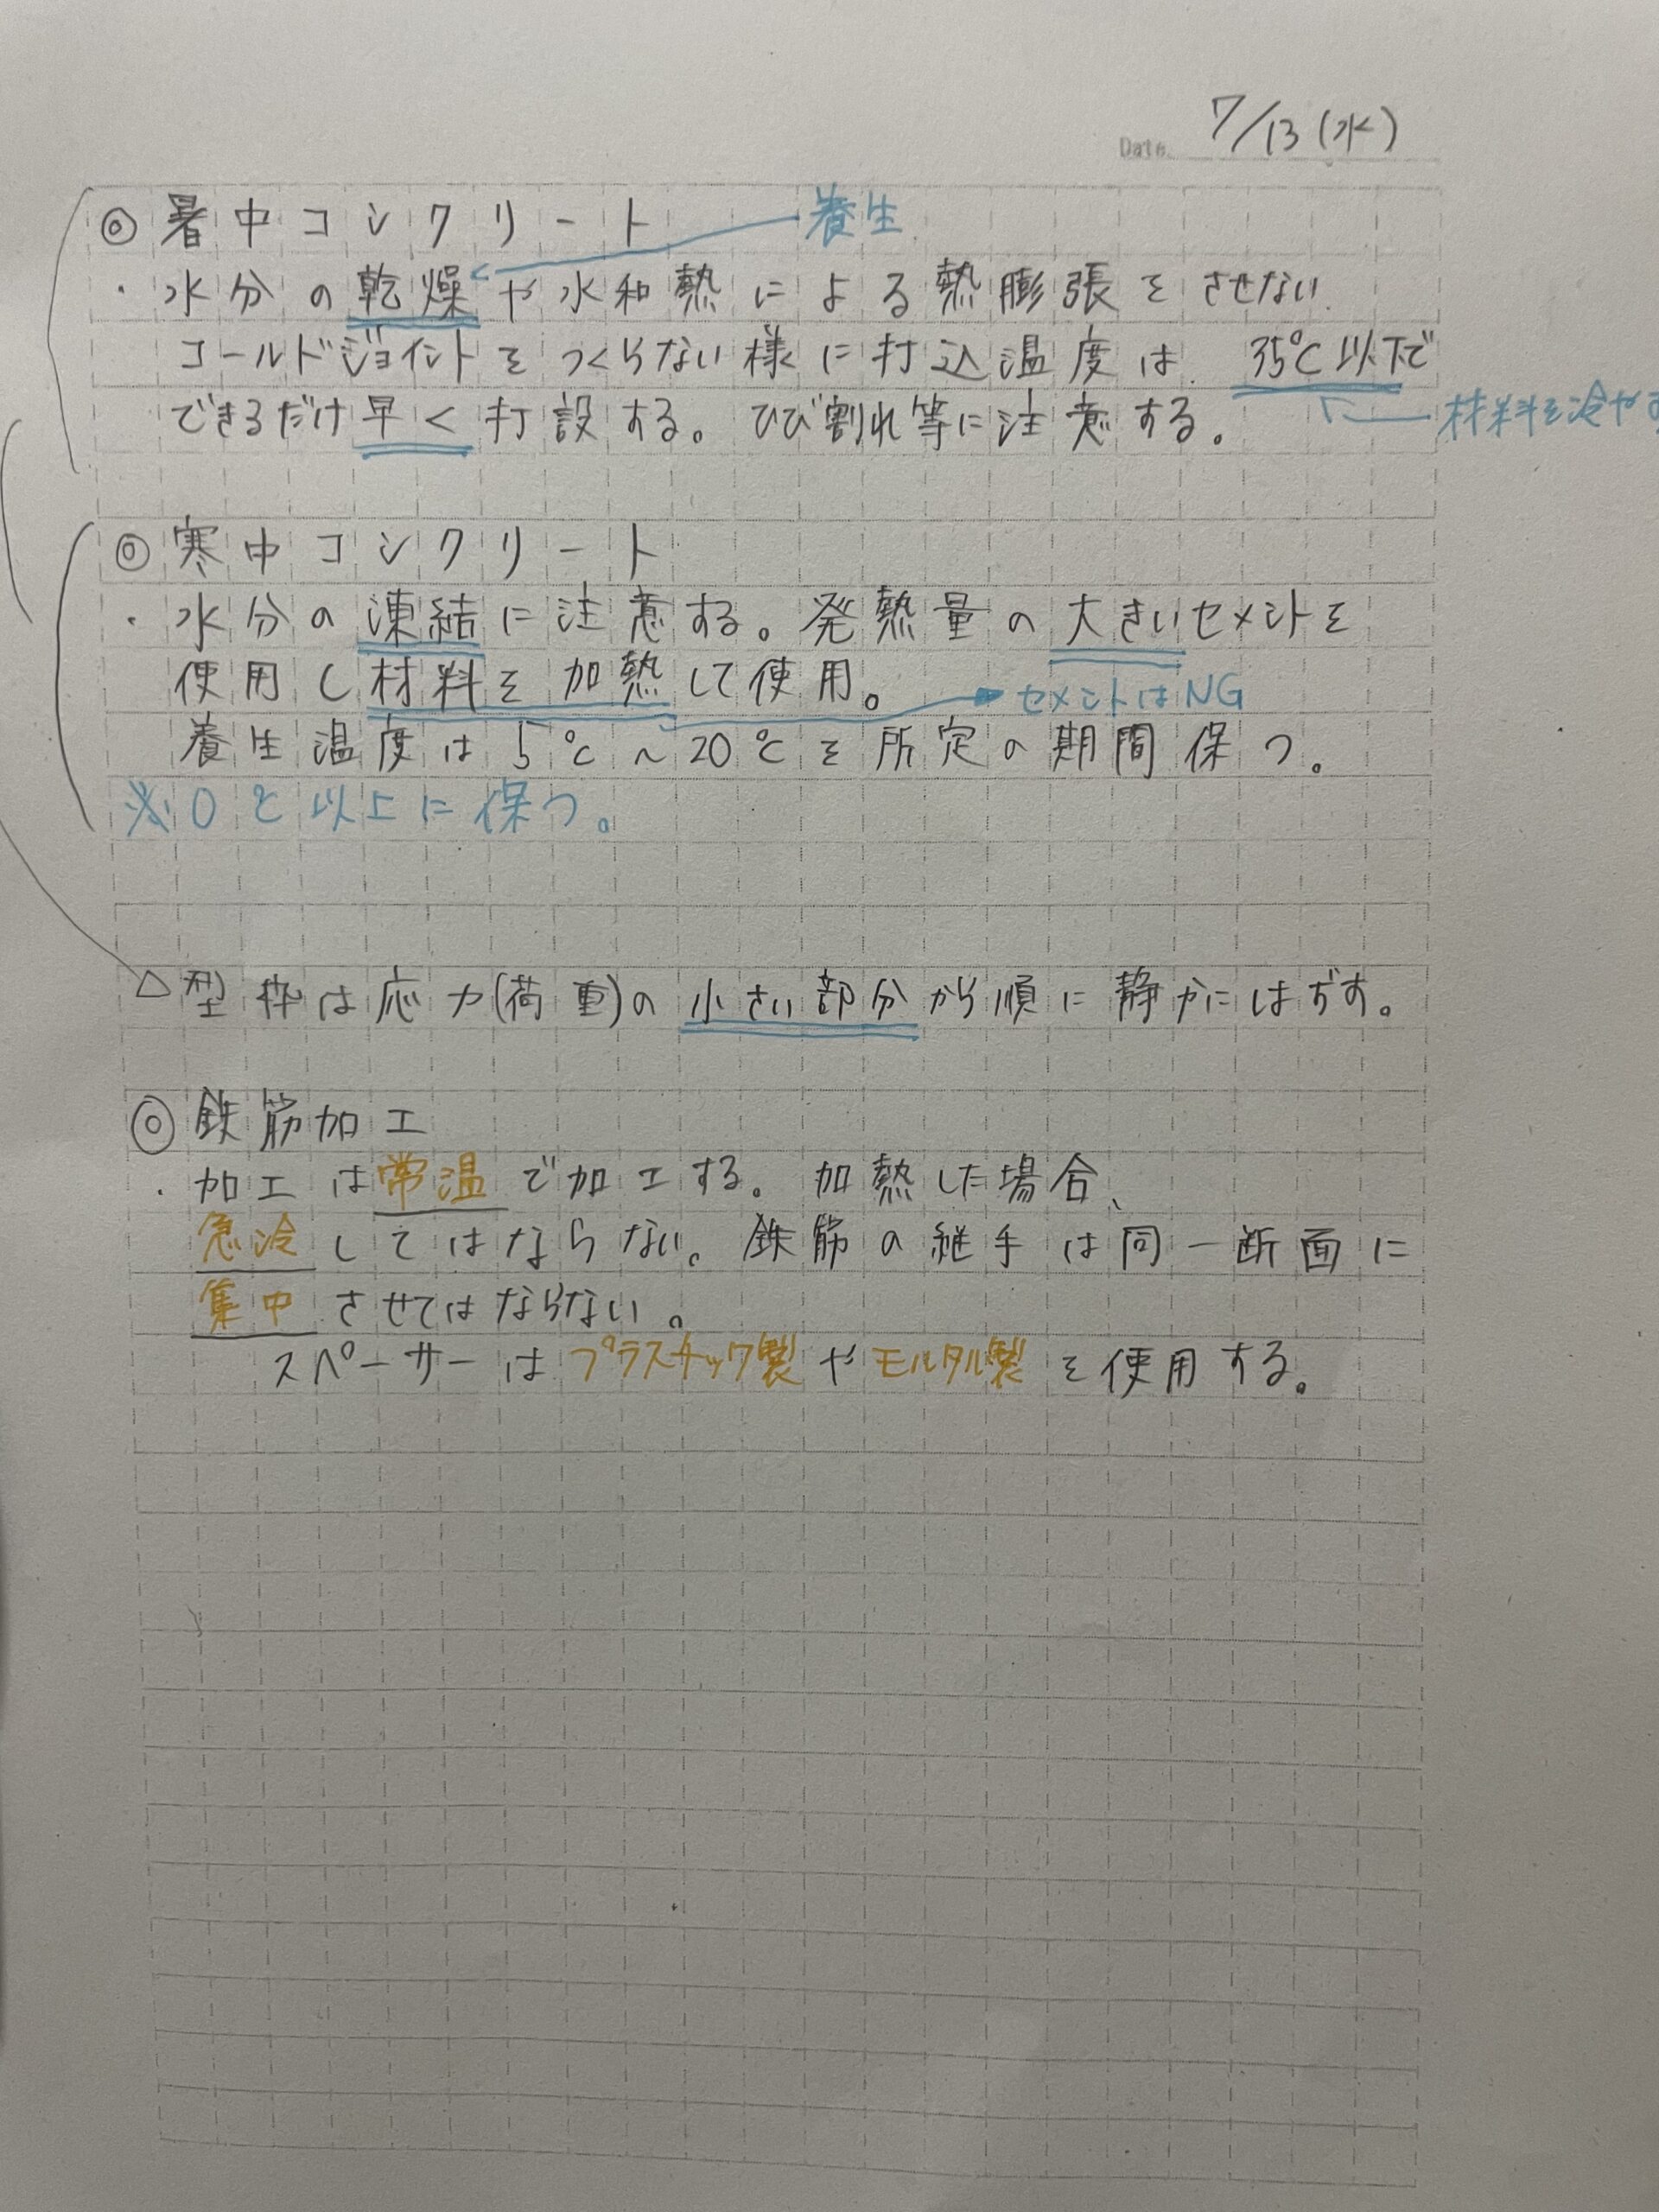 Date. 7/13(水)
◎暑中コンクリート 養生
・水分の乾燥や水和熱による熱膨張をさせない
コールドジョイントをつくらない様に打込温度は 35℃以下で
できるだけ早く打設する。ひび割れ等に注意する。 材料を冷やす
◎寒中コンクリート
・水分の凍結に注意する。発熱量の大きいセメントを
使用し材料を加熱して使用。 セメントはNG
養生温度は5℃～20℃を所定の期間保つ。
※0℃以上に保つ。
△型枠は応力(荷重)の小さい部分から順に静かにはずす。
◎鉄筋加工
・加工は常温で加工する。加熱した場合、
急冷してはならない。鉄筋の継手は同一断面に
集中させてはならない。
スペーサーはプラスチック製やモルタル製を使用する。